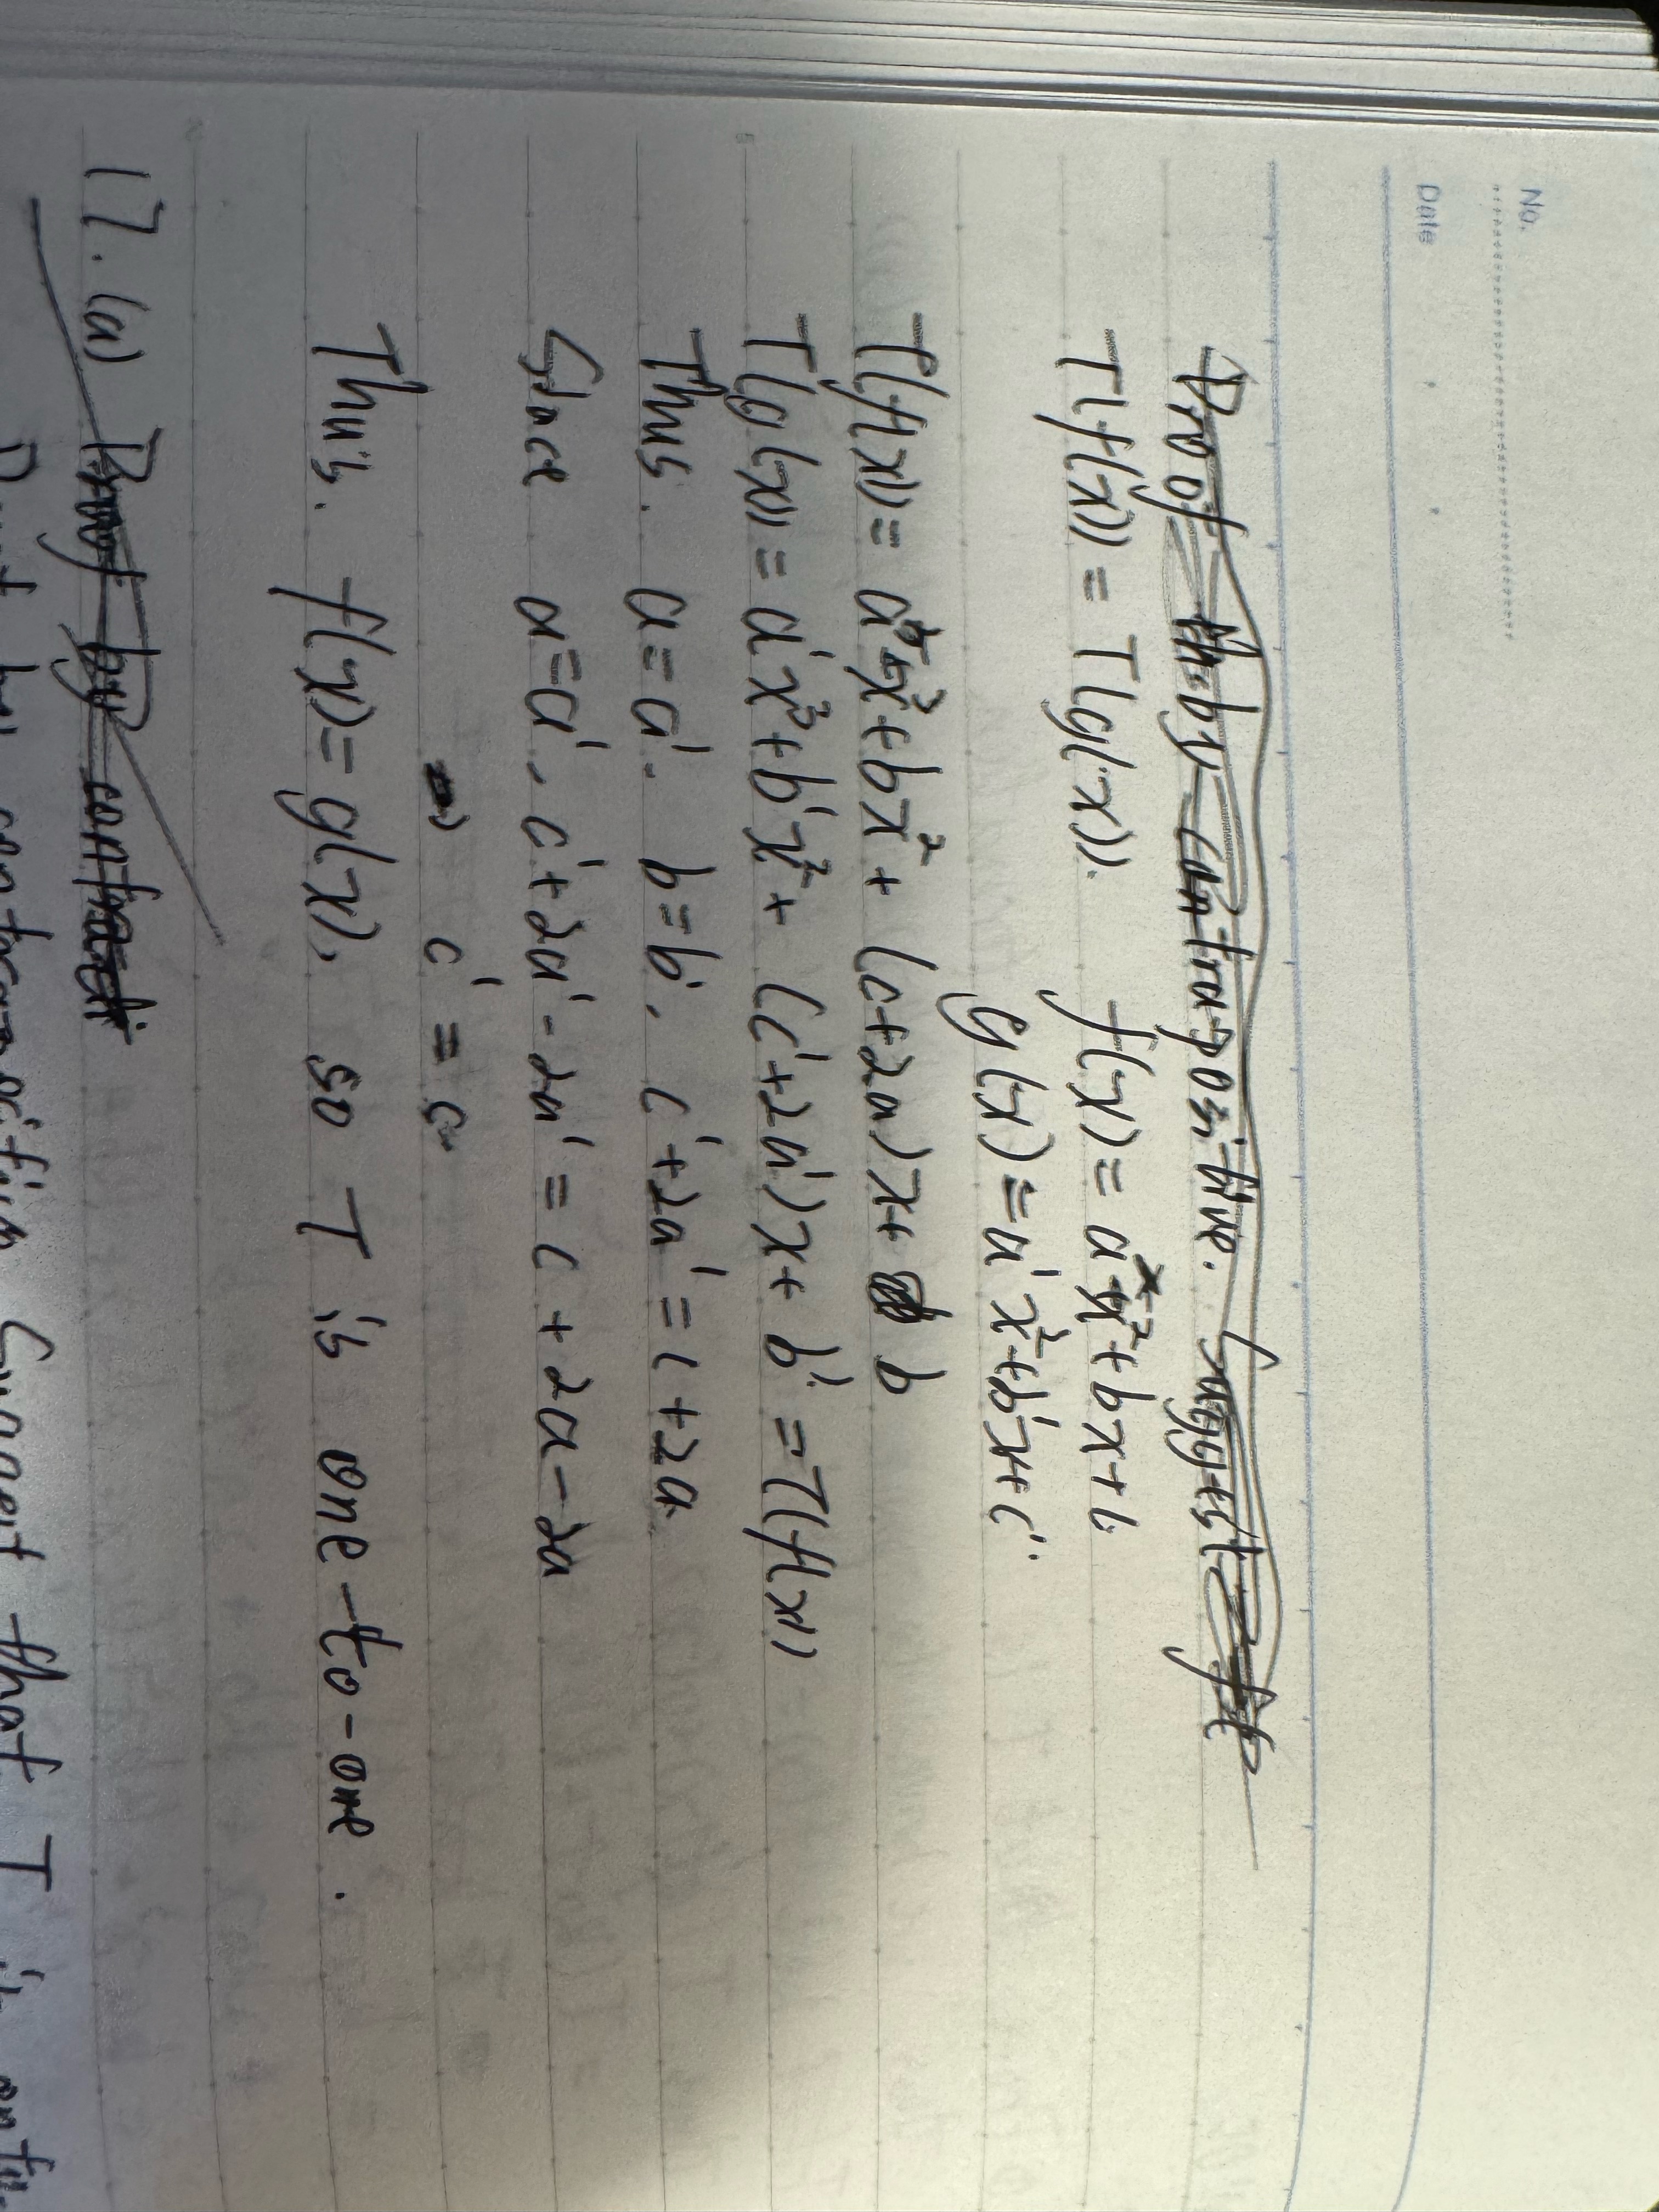 No.
Date
T(f(x)) = T(g(x)). f(x) = ax²+bx+c
g(x) = a'x²+b'x+c'.
T(f(x)) = ax³+bx²+ (c+2a)x+ b
T(g(x)) = a'x³+b'x²+ (c'+2a')x+ b' = T(f(x))
Thus. a=a'. b=b', c'+2a' = c+2a
Since a=a', c'+2a'-2a' = c+2a-2a
c' = c
Thus. f(x)=g(x), so T is one-to-one.
17. (a) Proof by contract
contrapositive Suggest that T is